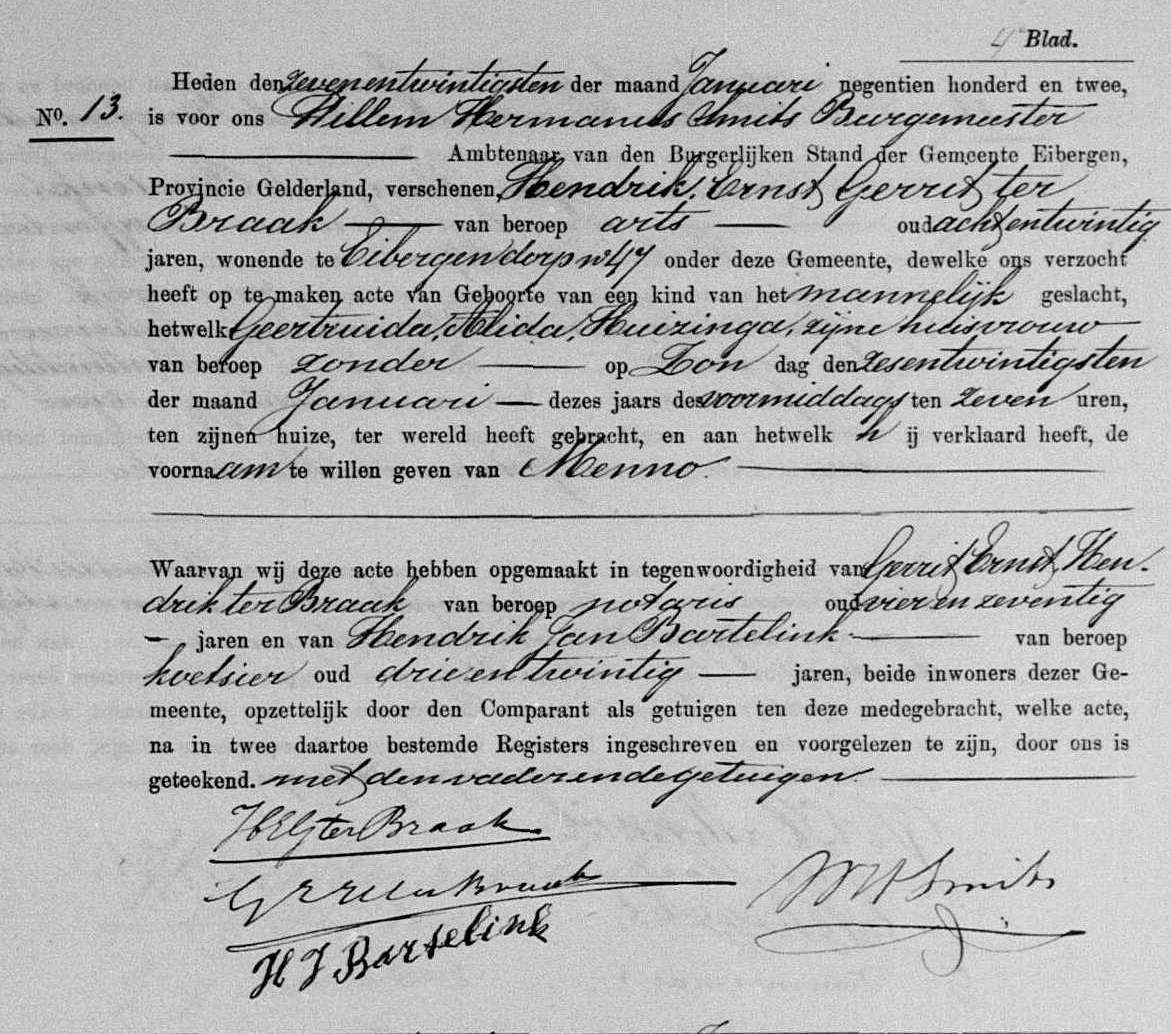 4e Blad.
Heden den zevenentwintigsten der maand Januari negentien honderd en twee,
No. 13. is voor ons Willem Hermanus Smits Burgemeester
Ambtenaar van den Burgerlijken Stand der Gemeente Eibergen,
Provincie Gelderland, verschenen, Hendrik, Ernst, Gerrit ter
Braak van beroep arts oud achtentwintig
jaren, wonende te Eibergen dorp no 47 onder deze Gemeente, dewelke ons verzocht
heeft op te maken acte van Geboorte van een kind van het mannelijk geslacht,
hetwelk Geertruida, Alida, Huizinga, zijne huisvrouw
van beroep zonder op Zon dag den zesentwintigsten
der maand Januari dezes jaars des voormiddags ten zeven uren,
ten zijnen huize, ter wereld heeft gebracht, en aan hetwelk h ij verklaard heeft, de
voornaam te willen geven van Menno.
Waarvan wij deze acte hebben opgemaakt in tegenwoordigheid van Gerrit, Ernst, Hen-
drik ter Braak van beroep notaris oud vier en zeventig
jaren en van Hendrik Jan Bartelink van beroep
koetsier oud drie en twintig jaren, beide inwoners dezer Ge-
meente, opzettelijk door den Comparant als getuigen ten deze medegebracht, welke acte,
na in twee daartoe bestemde Registers ingeschreven en voorgelezen te zijn, door ons is
geteekend. met den vader en de getuigen.
HEG ter Braak
GEH ter Braak
WH Smits
H J Bartelink